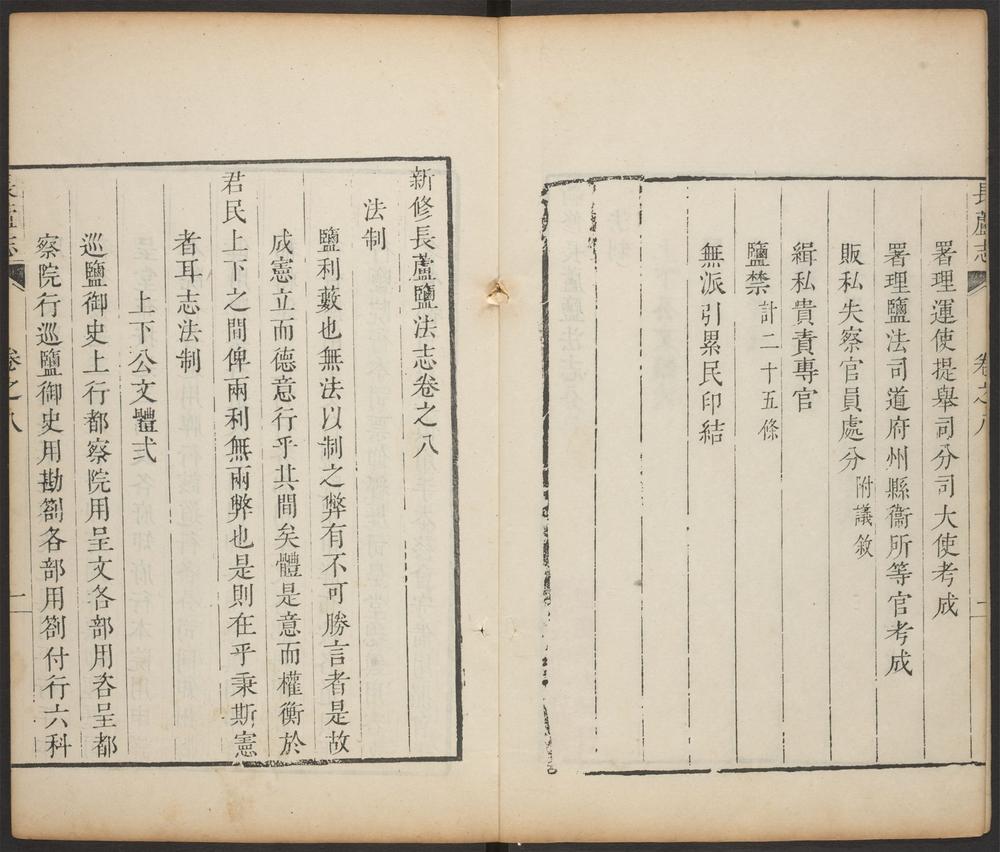 長蘆志
卷之八
署理運使提舉司分司大使考成
署理鹽法司道府州縣衞所等官考成
販私失察官員處分附議敘
緝私貴責專官
鹽禁計二十五條
無派引累民印結
新修長蘆鹽法志卷之八
法制
鹽利藪也無法以制之弊有不可勝言者是故
成憲立而德意行乎其間矣體是意而權衡於
君民上下之間俾兩利無兩弊也是則在乎秉斯憲
者耳志法制
上下公文體式
巡鹽御史上行都察院用呈文各部用咨呈都
察院行巡鹽御史用勘劄各部用劄付行六科
長蘆志
卷之八
一